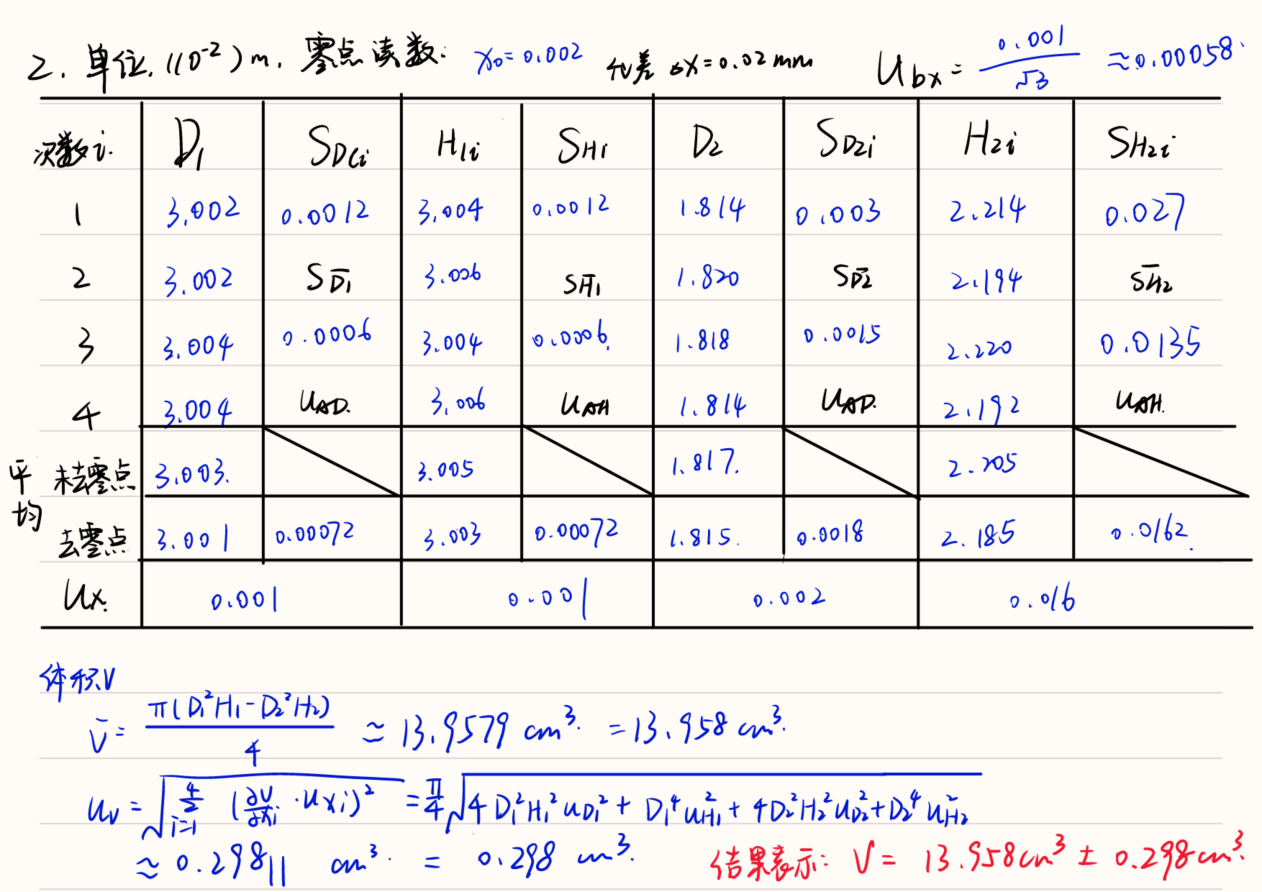 2. 单位. (10⁻²) m. 零点读数: x₀=0.002 允差 △x=0.02mm U_bx = 0.001/√3 ≈0.00058.
次数i. D₁ S_D1i H₁ᵢ S_H1 D₂ S_D2i H₂ᵢ S_H2i
1 3.002 0.0012 3.004 0.0012 1.814 0.003 2.214 0.027
2 3.002 S_D̄₁ 3.006 S_H̄₁ 1.820 S_D̄₂ 2.194 S_H̄₂
3 3.004 0.0006 3.004 0.0006. 1.818 0.0015 2.220 0.0135
4 3.004 U_AD. 3.006 U_AH 1.814 U_AD. 2.192 U_AH.
平均 未去零点 3.003. 3.005 1.817. 2.205
去零点 3.001 0.00072 3.003 0.00072 1.815. 0.0018 2.185 0.0162.
Ux. 0.001 0.001 0.002 0.016
体积V
V̄ = π(D₁²H₁-D₂²H₂)/4 ≈ 13.9579 cm³. =13.958 cm³.
u_v = √(⁴Σᵢ₌₁ (∂V/∂xᵢ · u_xi)²) = π/4 √(4D₁²H₁²u_D1² + D₁⁴u_H1² + 4D₂²H₂²u_D2² + D₂⁴u_H2²)
≈ 0.29811 cm³. = 0.298 cm³. 结果表示: V = 13.958cm³ ± 0.298cm³.